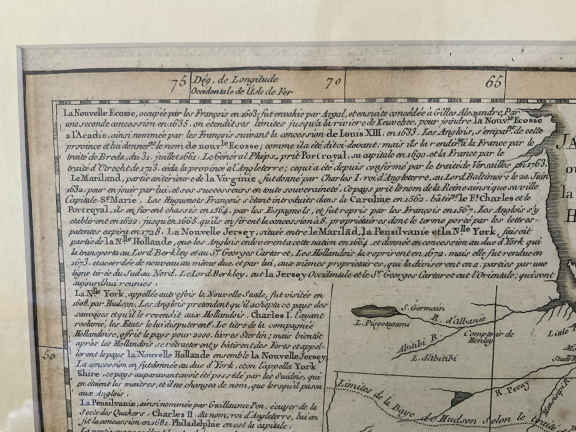 75 Deg. de Longitude 70 65
Occidentale de l'Isle de Fer
La Nouvelle Ecosse, occupée par les François en 1603, fut envahie par Argal, et ensuite concédée à Gilles Alexandre. Par
une seconde concession en 1635, on étendit ses limites jusqu'à la riviere de
à l'Acadie, ainsi nommée par les François suivant la concession de Louis XIII. en 1633. Les Anglois, s'empart. de cette
province et lui donnent le nom de nouv.le Ecosse; comme il a été dit ci devant; mais ils la rendent à la France par le
traité de Breda, du 31. juillet 1661. Le Général Phips, prit Port royal, sa capitale en 1690. et la France par le
traité d'Utrecht de 1713. céda la province à l'Angleterre; ce qui a été depuis confirmé par le traité de Versailles, en 1763.
Le Mariland, partie antérieure de la Virginie, fut donné par Charles I. roi d'Angleterre, au Lord Baltimore le 20. Juin
1632. pour en jouir par lui, et ses successeurs en toute souveraineté. Ce pays prit le nom de la Reine ainsi que sa ville
Capitale S.te Marie. Les Huguenots François s'étant introduits dans la Caroline en 1562. bâtirt. le F.t Charles et le
Port royal, ils en furent chassés en 1564. par les Espagnols, et fut repris par les François en 1567. Les Anglois s'y
établirent en 1662. jusqu'en 1663. qu'ils en firent la concession à 8. propriétaires dont le terme porté par les lettres
patentes expira en 1728. La Nouvelle Jersey, située entre le Marilad, la Pensilvanie et la N.lle York, faisoit
partie de la N.lle Hollande, que les Anglois enleverent a cette nation en 1664. et donnée en concession au duc d'York qui
la transporta au Lord Berkley et au S.r Georges Carteret. Les Hollandois la reprirent en 1672. mais elle fut rendue en
1673. et accordée de nouveau au même duc, et par lui, aux mêmes propriétaires, qui la diviserent en 2. parties par une
ligne tirée du Sud au Nord. Le Lord Berkley, eut la Jersey Occidentale et le S.r Georges Carteret eut l'Orientale, qui sont
aujourd'hui reunies.
La N.lle York, appellée autrefois la Nouvelle Suede, fut visitée en
1608. par Hudson. Les Anglois prétendent qu'il acheta ce pays des
sauvages et qu'il le revendit aux Hollandois. Charles I. l'ayant
réclamé, les Etats lui disputerent. Le titre de la compagnie
Hollandoise, offrit le pays pour 2500. livres Sterlin; mais bientôt
après les Hollandois se rétracterent, y bâtirent des Forts et appel-
lerent le pays la Nouvelle Hollande ensemble la Nouvelle Jersey.
La concession en fut donnée au duc d'York, et on l'appella York
Shire. ce pays auparavant avoit été possédé par les Suédois, qui
en étoient les maitres, et il ne changea de nom, que lorsqu'il passa
aux Anglois.
La Pensilvanie, ainsi nommée par Guillaume Pen, écuyer de la
Secte des Quakers. Charles II. du nom, roi d'Angleterre, lui en
fit la concession en 1681. Philadelphie en est la capitale.
50
S. Germain
L. Piscoutagami
R. d'Albanie
Abitibi R.
L. d'Abitibi
R. Percy
Limites de la Baye de Hudson Selon le
JA
ou
la
H